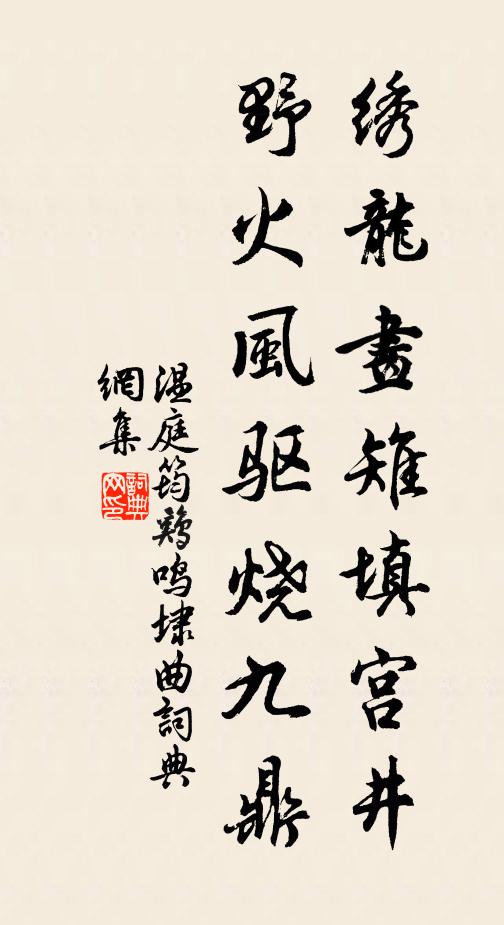 绣龍畫雉填宫井
野火風驱烧九鼎
温庭筠鷄鸣埭曲詞典
網集
詞典網印